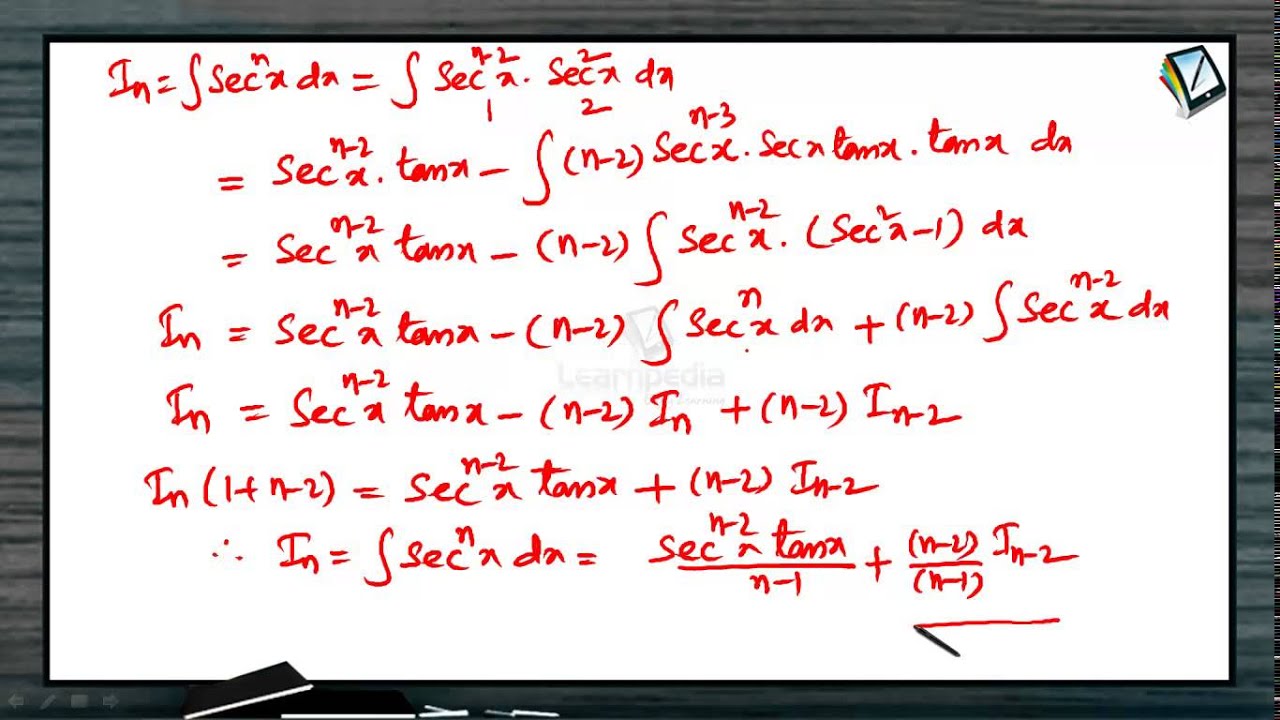 Iₙ = ∫ secⁿx dx = ∫ secⁿ⁻²x · sec²x dx
1 2
= secⁿ⁻²x · tanx − ∫ (n−2) secⁿ⁻³x · secx tanx · tanx dx
= secⁿ⁻²x tanx − (n−2) ∫ secⁿ⁻²x · (sec²x−1) dx
Iₙ = secⁿ⁻²x tanx − (n−2) ∫ secⁿx dx + (n−2) ∫ secⁿ⁻²x dx
Learnpedia
Iₙ = secⁿ⁻²x tanx − (n−2) Iₙ + (n−2) Iₙ₋₂
Iₙ (1+n−2) = secⁿ⁻²x tanx + (n−2) Iₙ₋₂
∴ Iₙ = ∫ secⁿx dx = (secⁿ⁻²x tanx)/(n−1) + (n−2)/(n−1) Iₙ₋₂